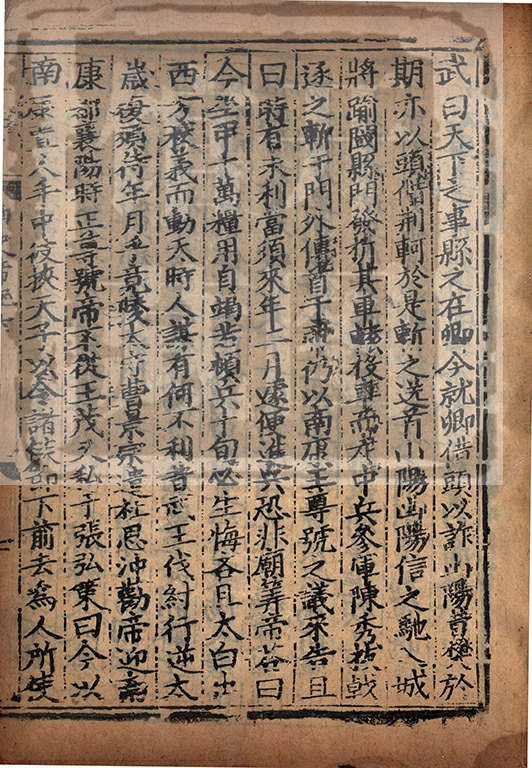 武曰天下之事縣之在卿今就卿借頭以詐山陽昔樊於
期亦以頭借荆軻於是斬之送首山陽山陽信之馳入城
將踰國縣門發折其車轅後車而走中兵參軍陳秀拔戟
逐之斬于門外傳首于帝仍以南康王尊號之議來告且
曰時有未利當須來年二月遽便進兵恐非廟筭帝答曰
今坐甲十萬糧用自竭若頓兵十旬必生悔吝且太白出
西方杖義而動天時人謀有何不利昔武王伐紂行逆太
歲復須待年月乎竟陵太守曹景宗遣杜思冲勸帝迎南
康都襄陽時正尊號帝不從王茂又私于張弘策曰今以
南康置人手中彼挾天子以令諸侯節下前去爲人所使